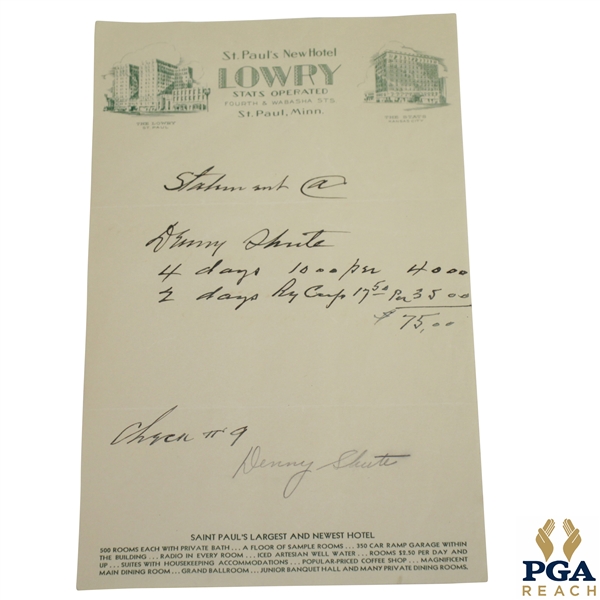 St. Paul's New Hotel
LOWRY
STATS OPERATED
FOURTH & WABASHA STS.
St. Paul, Minn.
THE LOWRY
ST. PAUL
Statement @
Denny Shute
4 days 10 00 per 40 00
2 days Ry Cup 17 50 Per 35 00
$ 75,00
Check # 9
Denny Shute
SAINT PAUL'S LARGEST AND NEWEST HOTEL
500 ROOMS EACH WITH PRIVATE BATH ... A FLOOR OF SAMPLE ROOMS ... 350 CAR RAMP GARAGE WITHIN
THE BUILDING ... RADIO IN EVERY ROOM ... ICED ARTESIAN WELL WATER ... ROOMS $2.50 PER DAY AND
UP ... SUITES WITH HOUSEKEEPING ACCOMMODATIONS ... POPULAR-PRICED COFFEE SHOP ... MAGNIFICENT
MAIN DINING ROOM ... GRAND BALLROOM ... JUNIOR BANQUET HALL AND MANY PRIVATE DINING ROOMS.
PGA
REACH